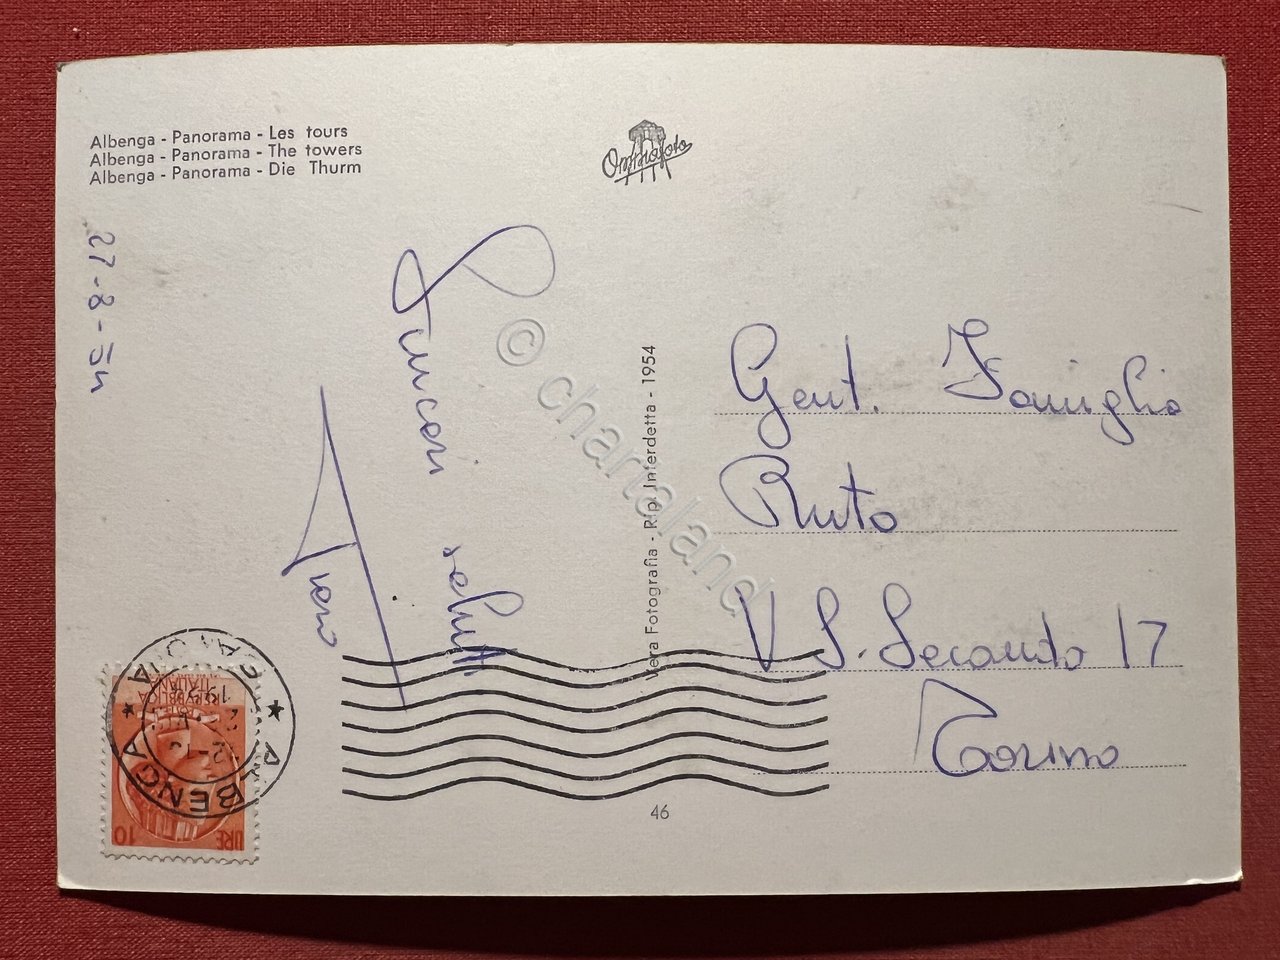 Albenga - Panorama - Les tours
Albenga - Panorama - The towers
Albenga - Panorama - Die Thurm
Omniafoto
27-8-54
Sinceri
saluti
Vera Fotografia - Rip. Interdetta - 1954
© chartaland
Gent. Famiglia
Ruto
V S. Secondo 17
Torino
46
ALBENGA
REPUBBLICA
ITALIANA
LIRE 10